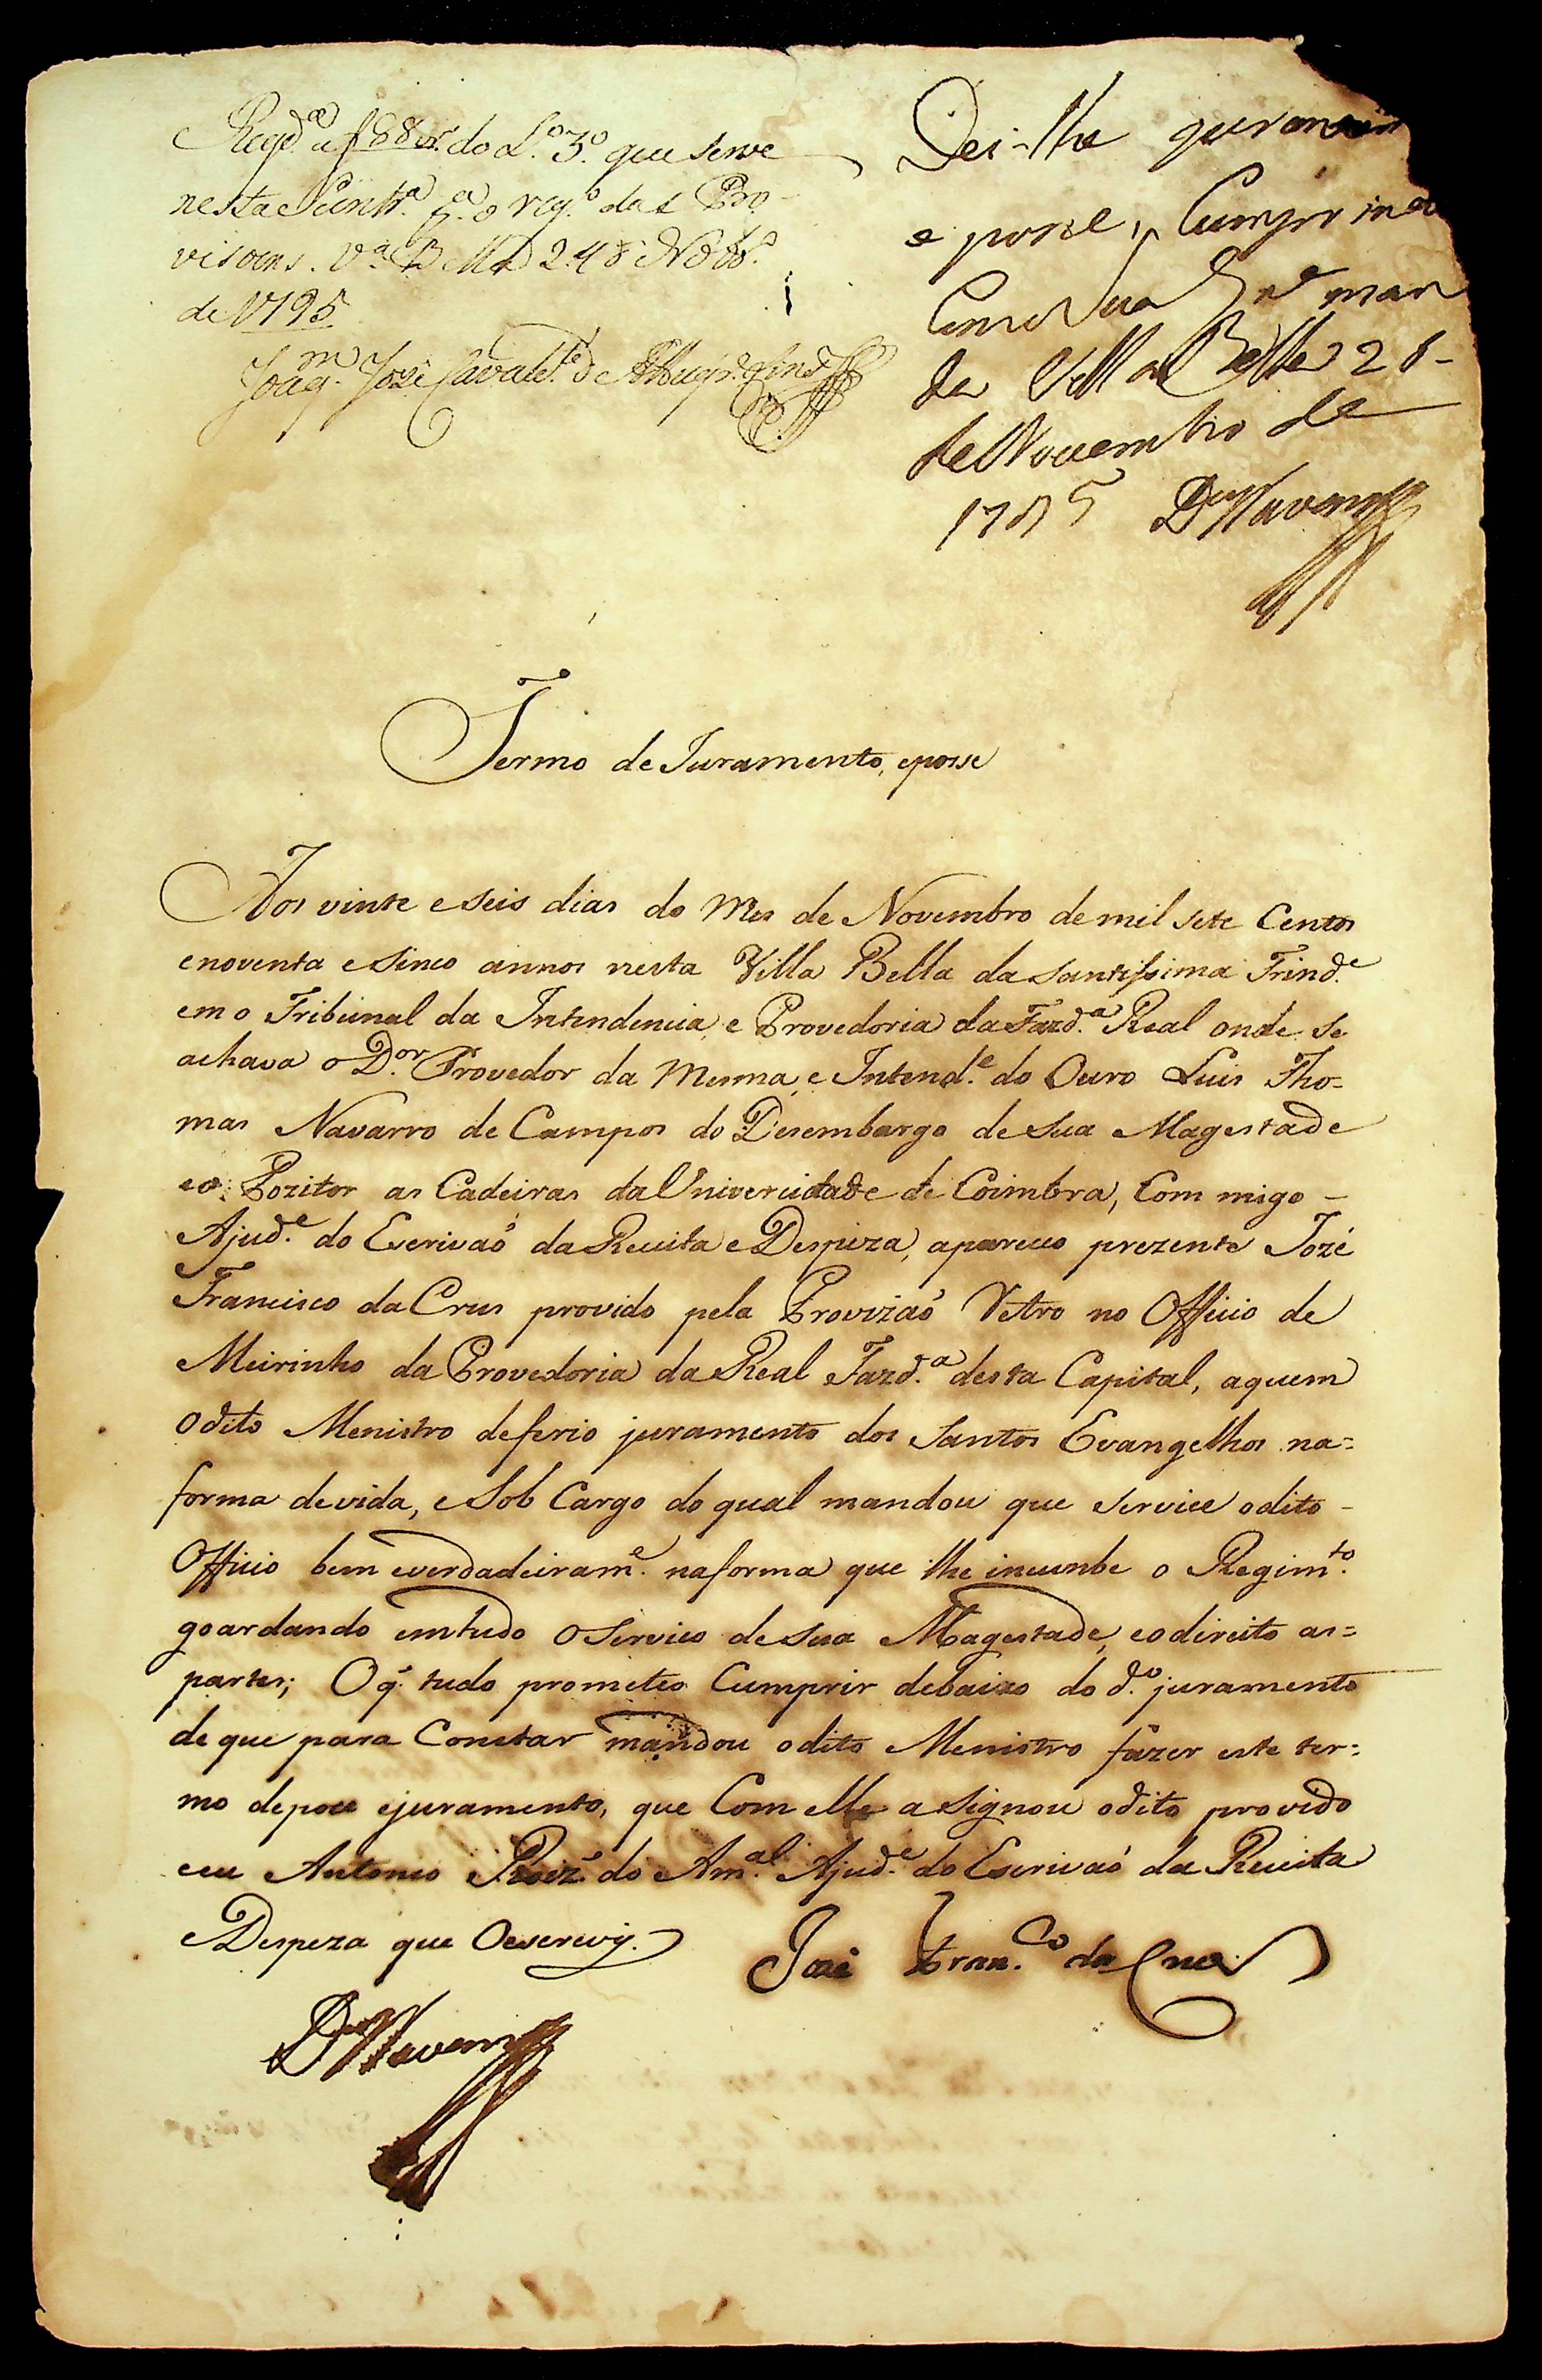 Regd.ª a f 88 vº do L.º 3.º que serve
nesta Contr.ª p.ª o reg.º das Pro-
visoens. V.ª B.ª 24 de Novbr.º
de 1795
Joaq.m José Cavalc.te de Albuqr.e Lins
Dei-lhe juramen
e posse, Cumpra
Como Sua Ex.ª man
da Villa Bella 26
de Novembro de
1795 Dr Navarro
Termo de Juramento, eposse
Aos vinte eseis dias do Mes de Novembro demil sete Centos
enoventa esinco annos nesta Villa Bella da santissima Trind.e
em o Tribunal da Intendencia, e Provedoria daFazd.ª Real onde se
achava o D.or Provedor da Mesma, e Intend.e do Ouro Luis Tho-
mas Navarro de Campos do Desembargo de sua Magestade
eo Pozitor as Cadeiras daUnivercidade de Coimbra, Com migo -
Ajud.e do Escrivaõ daReceita eDespeza, apareceo prezente Jozé
Francisco daCrus provido pela Provizaõ Retro no Officio de
Meirinho da Provedoria da Real Fazd.ª desta Capital, aquem
odito Menistro deferio juramento dos Santos Evangelhos na=
forma devida, esob Cargo do qual mandou que service odito -
Officio bem everdadeiram.e naforma que lhe incumbe o Regim.to
goardando emtudo oservico desua Magestade, eodireito as=
partes; Oq̃ tudo prometeo Cumprir debaixo do d.º juramento
de que para Constar mandou odito Menistro fazer este ter=
mo deposse ejuramento, que Com elle asignou odito provido
eeu Antonio Roiz' do Am.al Ajud.e do Escrivaõ da Receita
eDespeza que Oescrevy.
José Fran.co da Crus
Dr Navarro